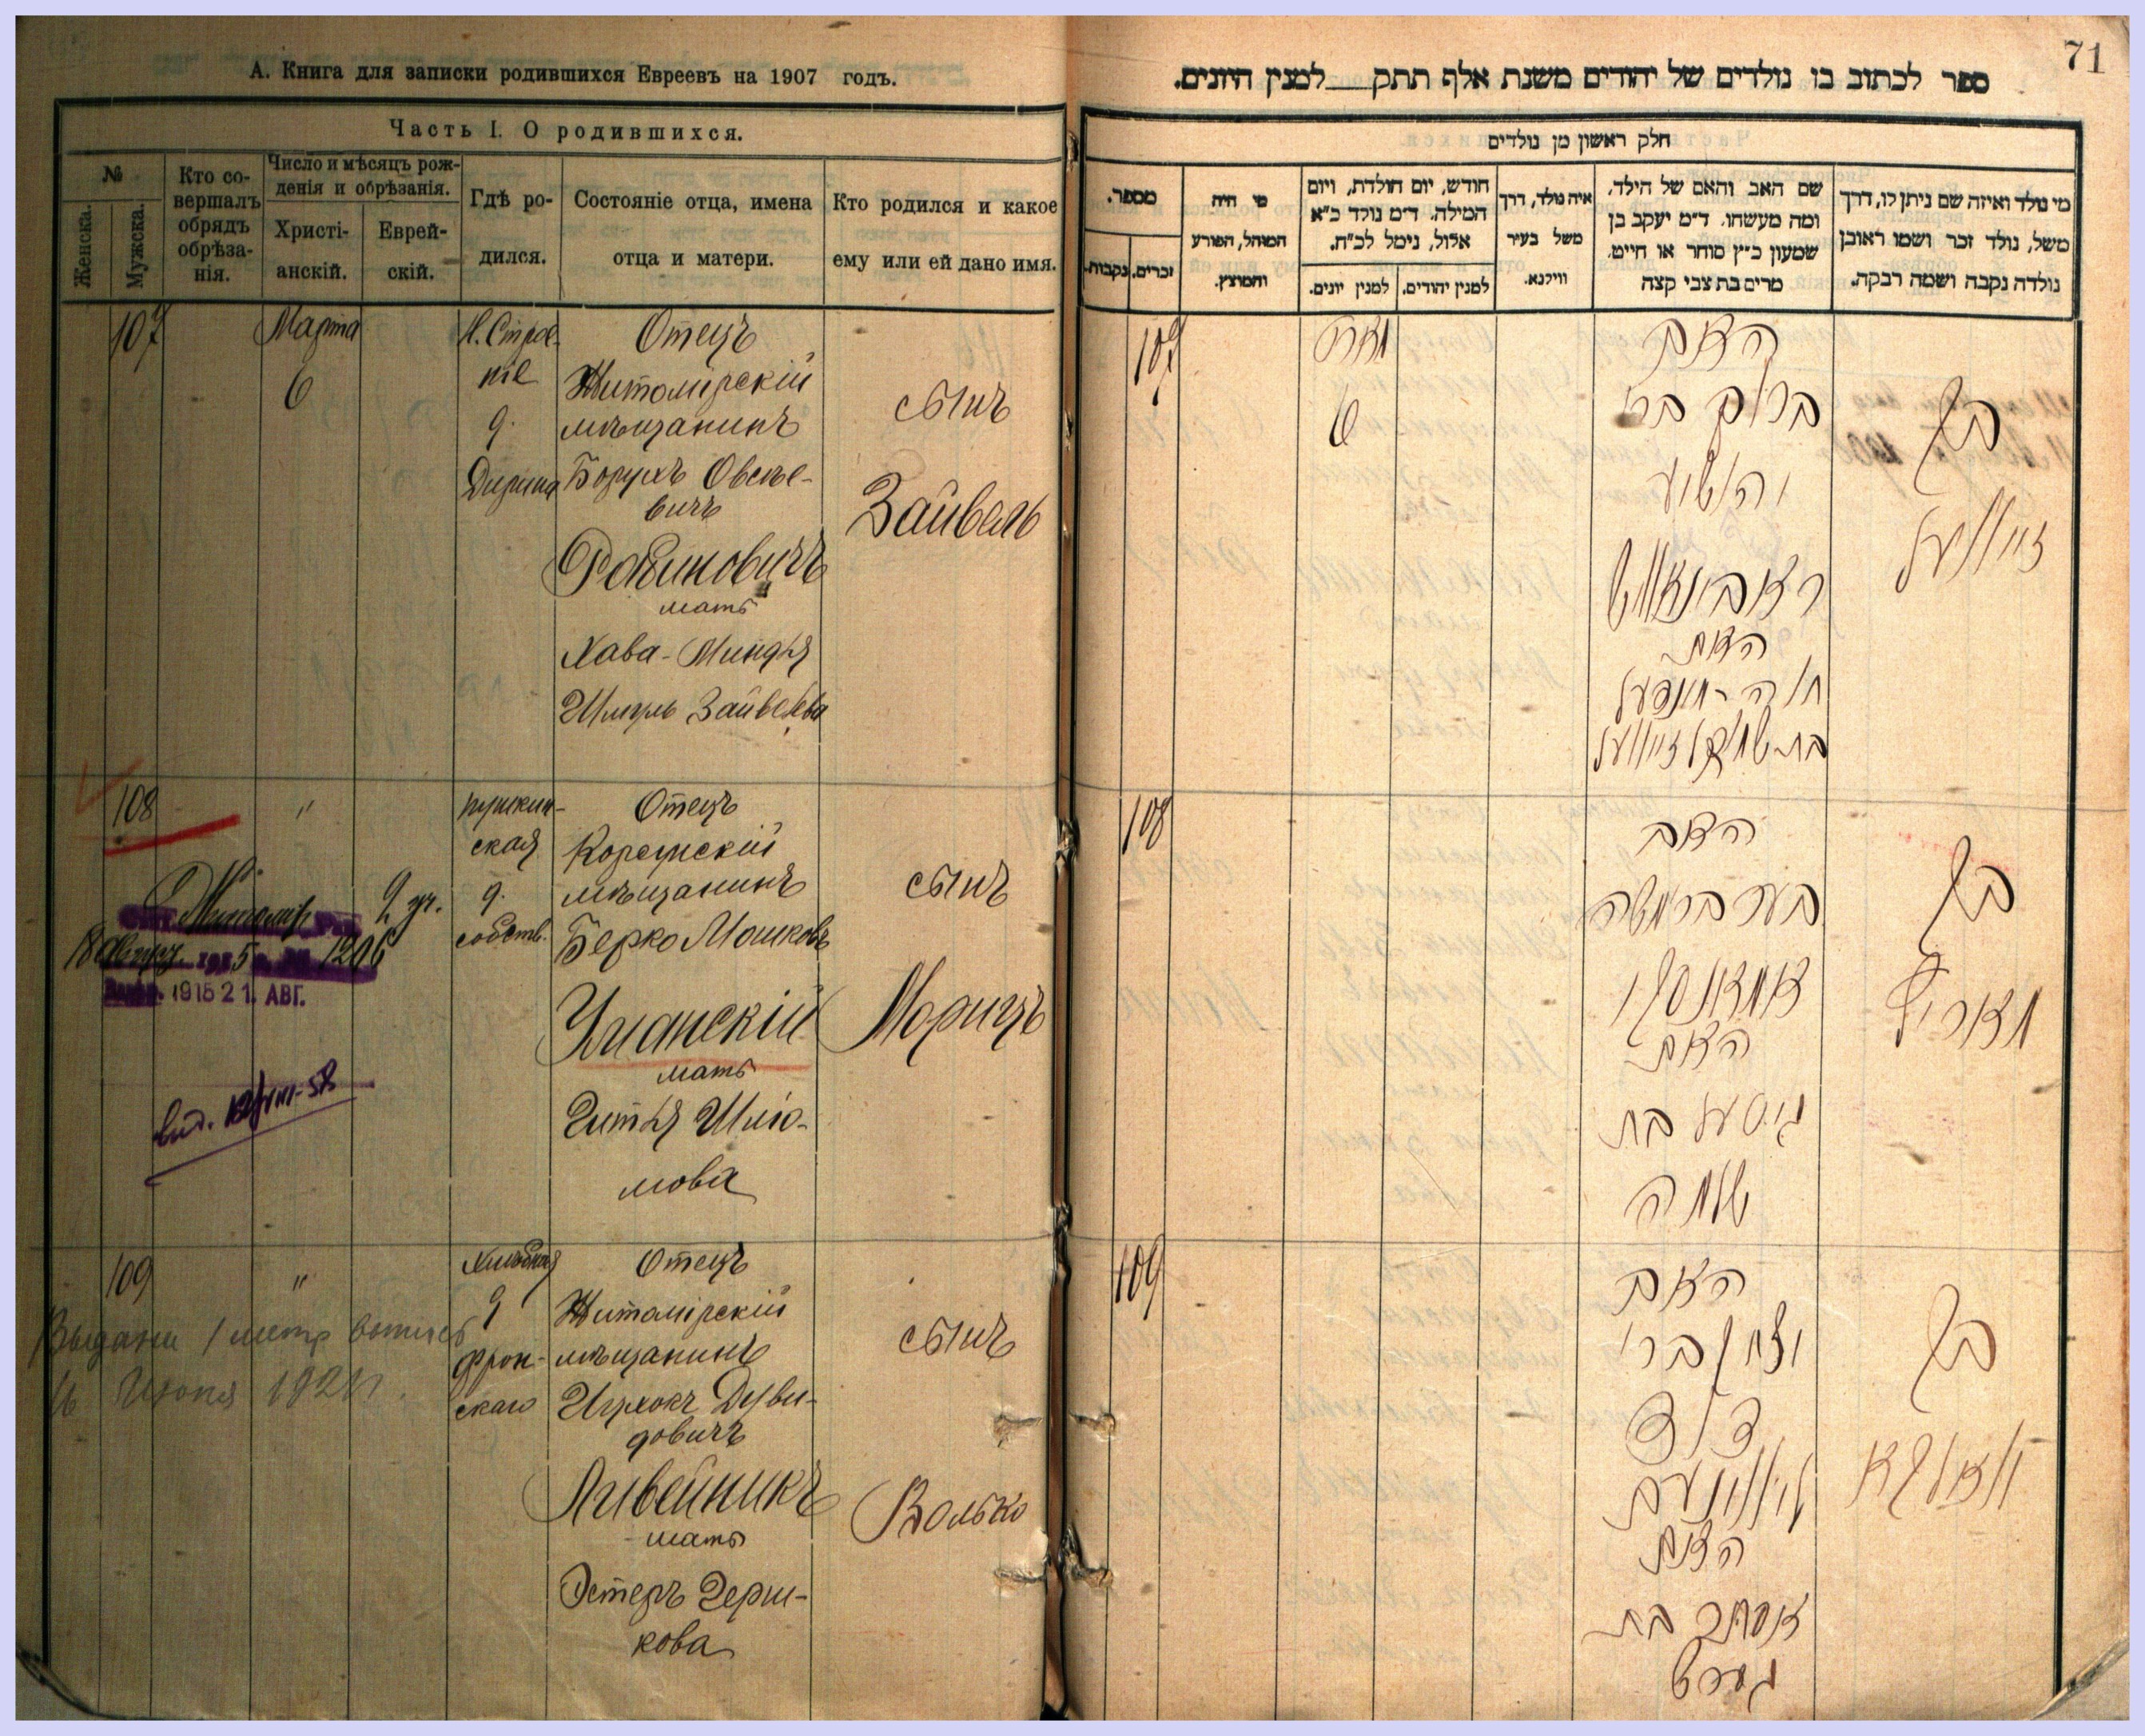 71
А. Книга для записки родившихся Евреевъ на 1907 годъ.
Часть I. О родившихся.
№
Женска.
Мужска.
Кто со-
вершалъ
обрядъ
обрѣза-
нія.
Число и мѣсяцъ рож-
денія и обрѣзанія.
Христі-
анскій.
Еврей-
скій.
Гдѣ ро-
дился.
Состояніе отца, имена
отца и матери.
Кто родился и какое
ему или ей дано имя.
107
Марта
6
Н. Строе-
ніе
д.
Отецъ
Житомірскій
мѣщанинъ
Борухъ Овсѣе-
вичъ
Рабиновичъ
мать
Хава-Миндля
Шмуль Зайвелева
сынъ
Зайвель
108
"
пушкин-
ская
д.
собств.
Отецъ
мѣщанинъ
Берко Мошковъ
Уманскій
мать
Гитля Шлio-
мова
сынъ
Морицъ
Житомир
2 уч.
18 Август 1915 1206
1915 21. АВГ.
вид. 12/VIII-58
109
"
Хлѣбная
д
Отецъ
Житомірскій
мѣщанинъ
Ицхокъ Дуви-
довичъ
Ливейникъ
мать
Эстеръ Герш-
кова
сынъ
Волько
16 Июня 1921 г.
ספר לכתוב בו נולדים של יהודים משנת אלף תתק __ למנין היונים.
חלק ראשון מן נולדים
מספר.
זכרים.
נקבות.
מי היה
המוהל, הפורע
והמוצץ.
חודש, יום הולדת, ויום
המילה. ד״מ נולד כ״א
אלול, נימל לכ״ח.
למנין יונים.
למנין יהודים.
איה נולד, דרך
משל בעיר
ווילנא.
שם האב והאם של הילד,
ומה מעשהו. ד״מ יעקב בן
שמעון כ״ץ סוחר או חייט,
מרים בת צבי קצה
מי נולד ואיזה שם ניתן לו, דרך
משל, נולד זכר ושמו ראובן
נולדה נקבה ושמה רבקה.
107
מארט
6
האב
ברוך בר׳
יהושע
ראבינאוויטש
האם
חוה-מינדעל
זיינוועל
בן
108
האב
בער בר משה
אומאנסקי
האם
גיטעל בת
שלמה
בן
מאריץ
109
האב
יצחק בר׳
דוד
האם
אסתר בת
גערש
בן
וואלקא